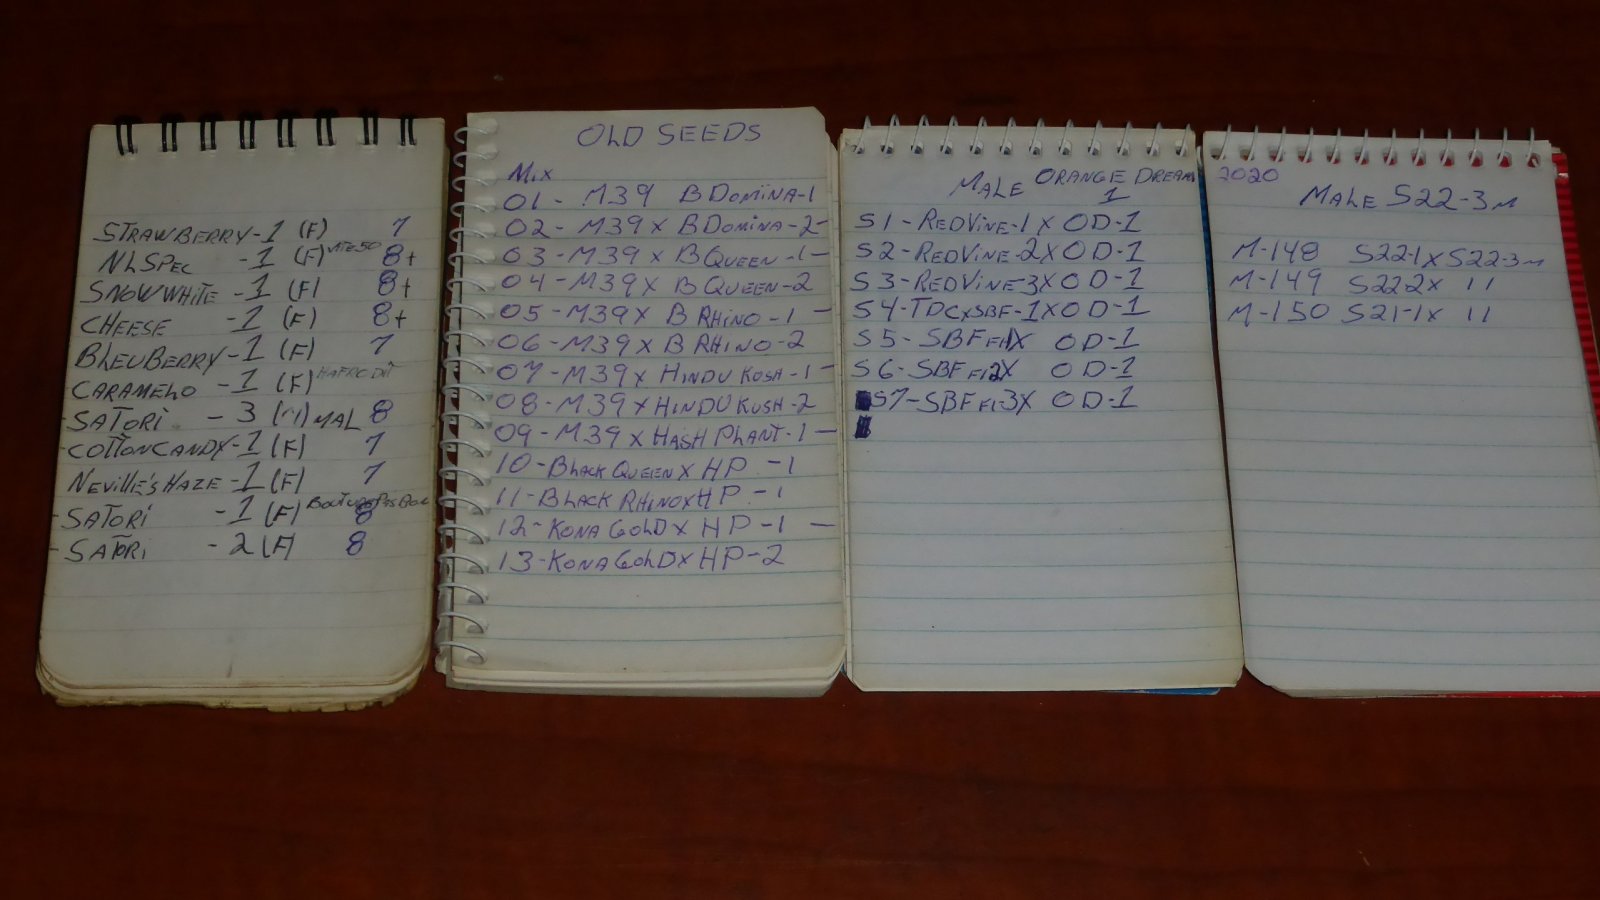 STRAWBERRY-1 (F) 7
NLSPEC -1 (F) 8+
SNOWWHITE -1 (F) 8+
CHEESE -1 (F) 8+
BLEUBERRY-1 (F) 7
CARAMELO -1 (F)
SATORI -3 MAL 8
COTTONCANDY-1 (F) 7
NEVILLE'S HAZE-1 (F) 7
SATORI -1 (F) 8
SATORI -2 (F) 8
OLD SEEDS
MIX
01- M39 B DOMINA-1
02- M39 X B DOMINA-2-
03- M39 X B QUEEN-1-
04- M39 X B QUEEN-2
05- M39 X B RHINO-1 -
06- M39 X B RHINO-2
07- M39 X HINDU KUSH-1-
08- M39 X HINDU KUSH-2
09- M39 X HASH PLANT-1-
10-BLACK QUEEN X HP -1
11-BLACK RHINO X HP -1
12-KONA GOLD X HP -1 -
13-KONA GOLD X HP -2
MALE ORANGE DREAM
1
S1-REDVINE-1 X OD-1
S2-REDVINE-2X OD-1
S3-REDVINE-3X OD-1
S4-TDCXSBF-1X OD-1
S5-SBF F1-1X OD-1
S6-SBF F1-2X OD-1
S7-SBF F1-3X OD-1
2020
MALE S22-3M
M-148 S22-1 X S22-3M
M-149 S22-2 X 11
M-150 S21-1 X 11